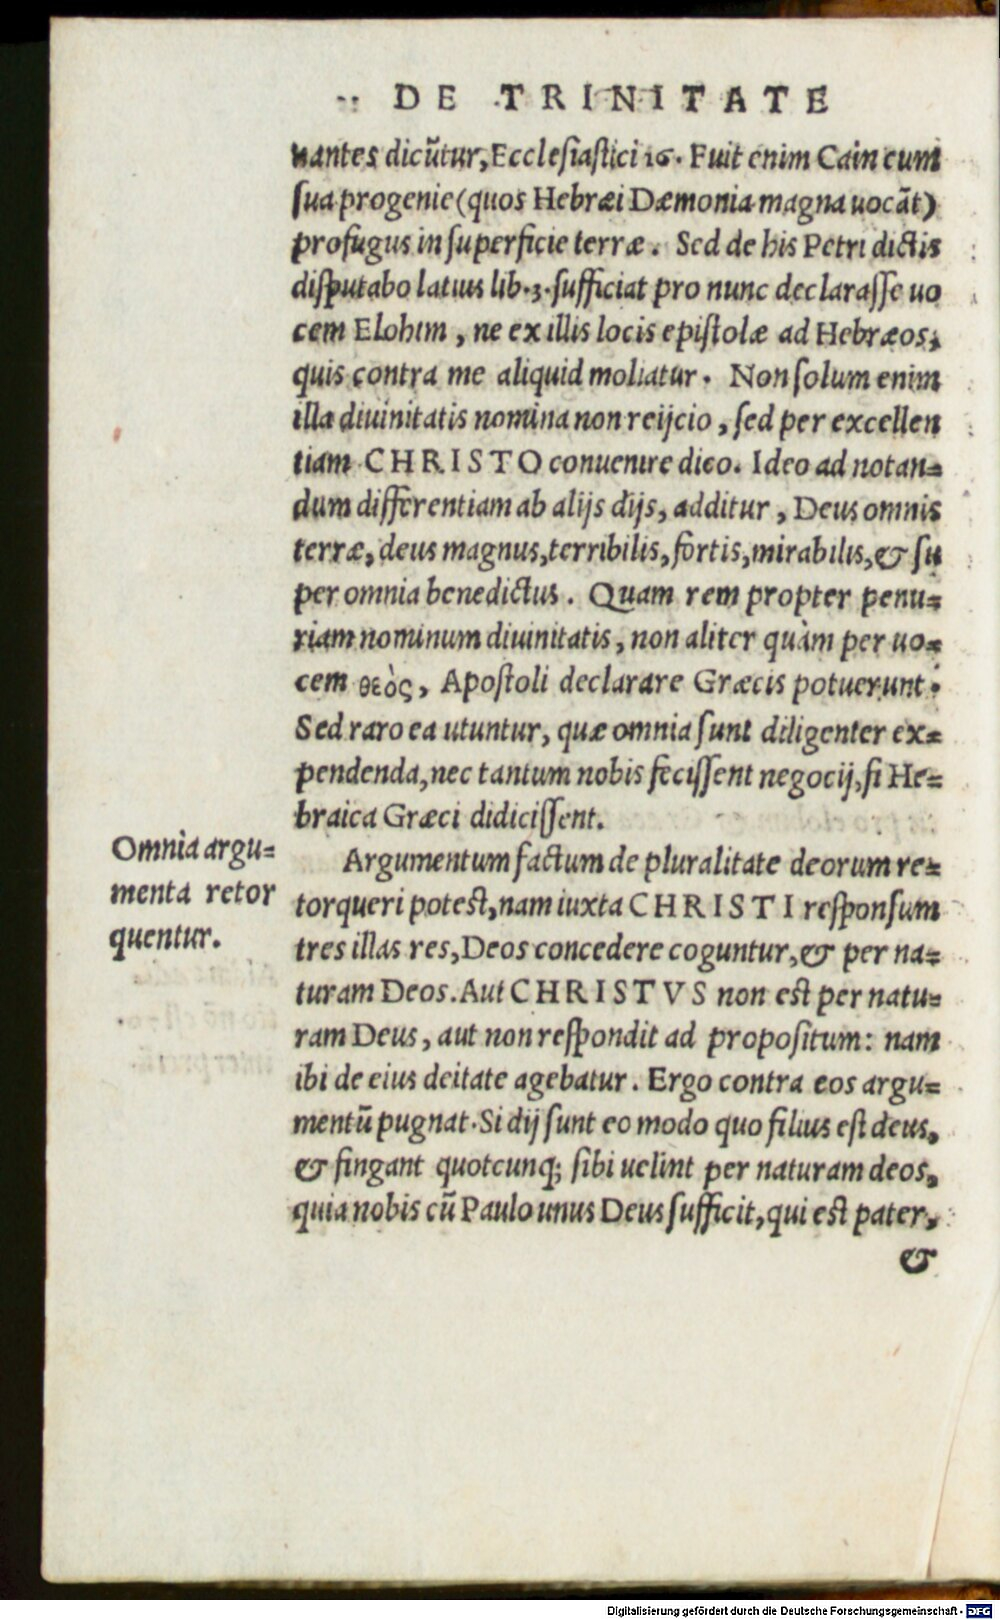 DE TRINITATE
nantes dicũtur, Ecclesiastici 16. Fuit enim Cain cum
sua progenie (quos Hebræi Dæmonia magna uocãt)
profugus in superficie terræ. Sed de his Petri dictis
disputabo latius lib. 3. sufficiat pro nunc declarasse uo
cem Elohim, ne ex illis locis epistolæ ad Hebræos,
quis contra me aliquid moliatur. Non solum enim
illa diuinitatis nomina non reijcio, sed per excellen
tiam CHRISTO conuenire dico. Ideo ad notan=
dum differentiam ab alijs dijs, additur, Deus omnis
terræ, deus magnus, terribilis, fortis, mirabilis, & su
per omnia benedictus. Quam rem propter penu=
riam nominum diuinitatis, non aliter quàm per uo=
cem θεὸς, Apostoli declarare Græcis potuerunt.
Sed raro ea utuntur, quæ omnia sunt diligenter ex=
pendenda, nec tantum nobis fecissent negocij, si He=
braica Græci didicissent.
Omnia argu=
menta retor
quentur.
Argumentum factum de pluralitate deorum re=
torqueri potest, nam iuxta CHRISTI responsum
tres illas res, Deos concedere coguntur, & per na=
turam Deos. Aut CHRISTVS non est per natu=
ram Deus, aut non respondit ad propositum: nam
ibi de eius deitate agebatur. Ergo contra eos argu=
mentũ pugnat. Si dij sunt eo modo quo filius est deus,
& fingant quotcunq; sibi uelint per naturam deos,
quia nobis cũ Paulo unus Deus sufficit, qui est pater,
&
Digitalisierung gefördert durch die Deutsche Forschungsgemeinschaft - DFG